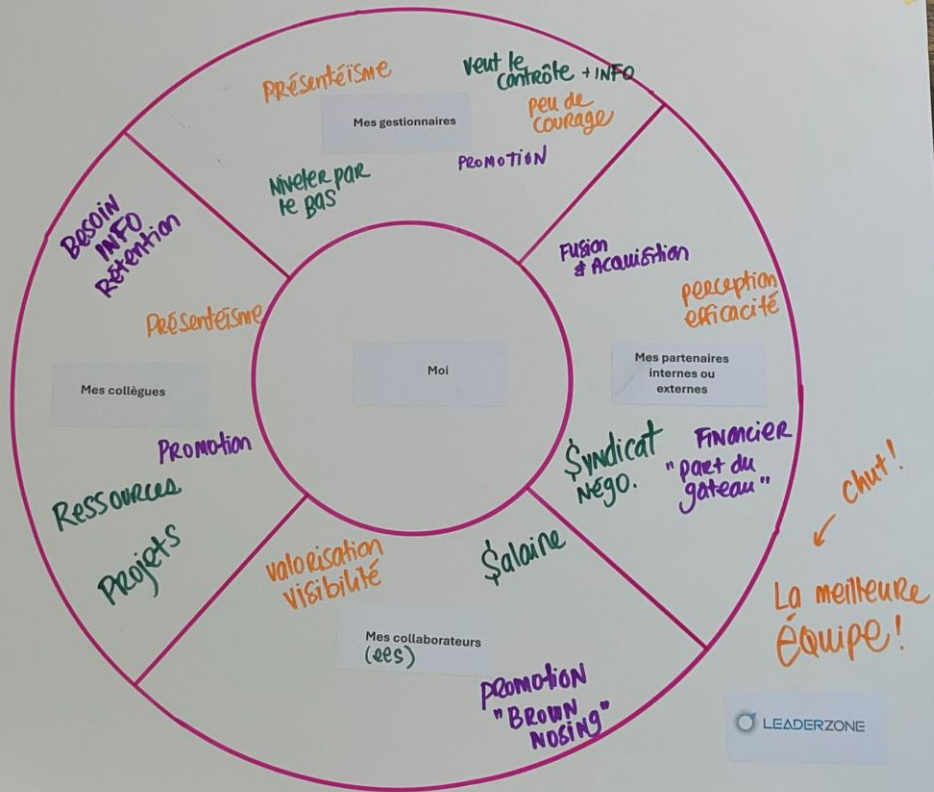 PRÉSENTÉÏSME
veut le
contrôle + INFO
peu de
courage
Mes gestionnaires
PROMOTION
Niveler par
le BAS
BESOIN
INFO
Rétention
PRÉSENTEÏSME
Mes collègues
PROMOTION
RESSOURCES
PROJETS
Moi
Fusion
& Acquisition
perception
efficacité
Mes partenaires
internes ou
externes
$yndicat
Négo.
FINANCIER
"part du
gateau"
valorisation
visibilité
$alaire
Mes collaborateurs
(ees)
PROMOTION
"BROWN
NOSING"
chut!
La meilleure
Équipe!
LEADERZONE